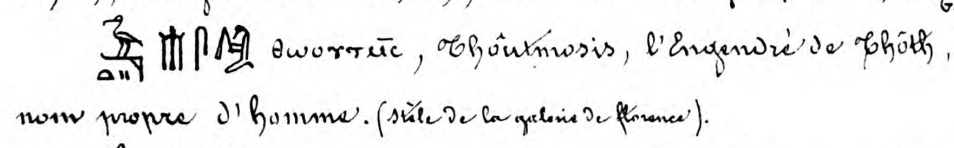 Thôutmosis, l'Engendré de Thôth,
nom propre d'homme. (stèle de la galerie de florence).